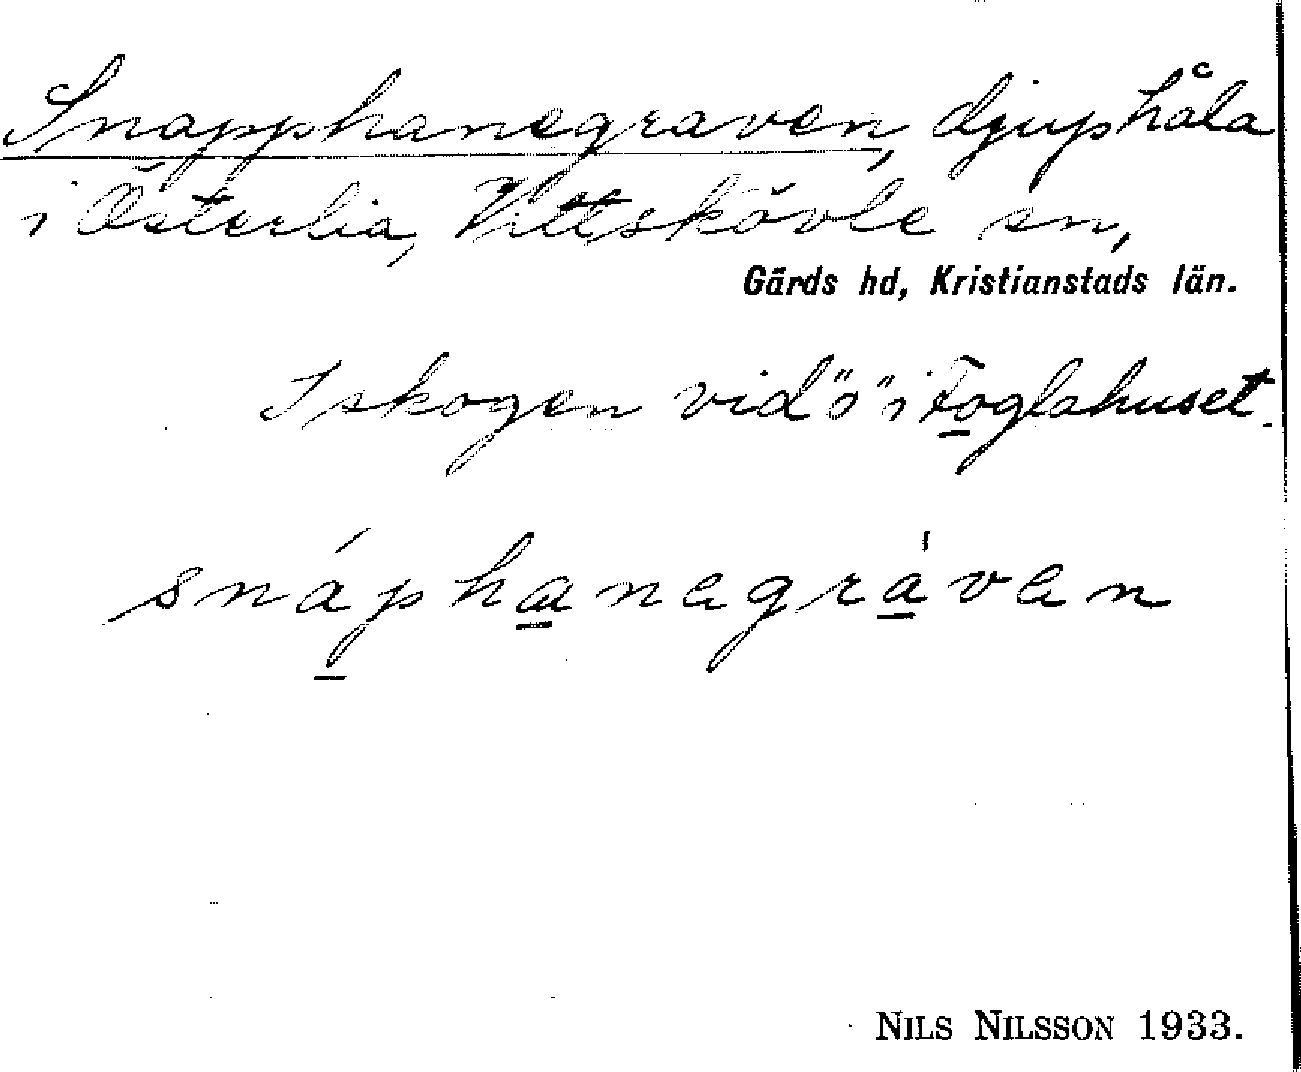 Snapphanegraven, djup håla
i Österlia, Vittskövle sn,
Gärds hd, Kristianstads län.
I skogen vid "ö" i Foglahuset.
snáphanegràven
NILS NILSSON 1933.